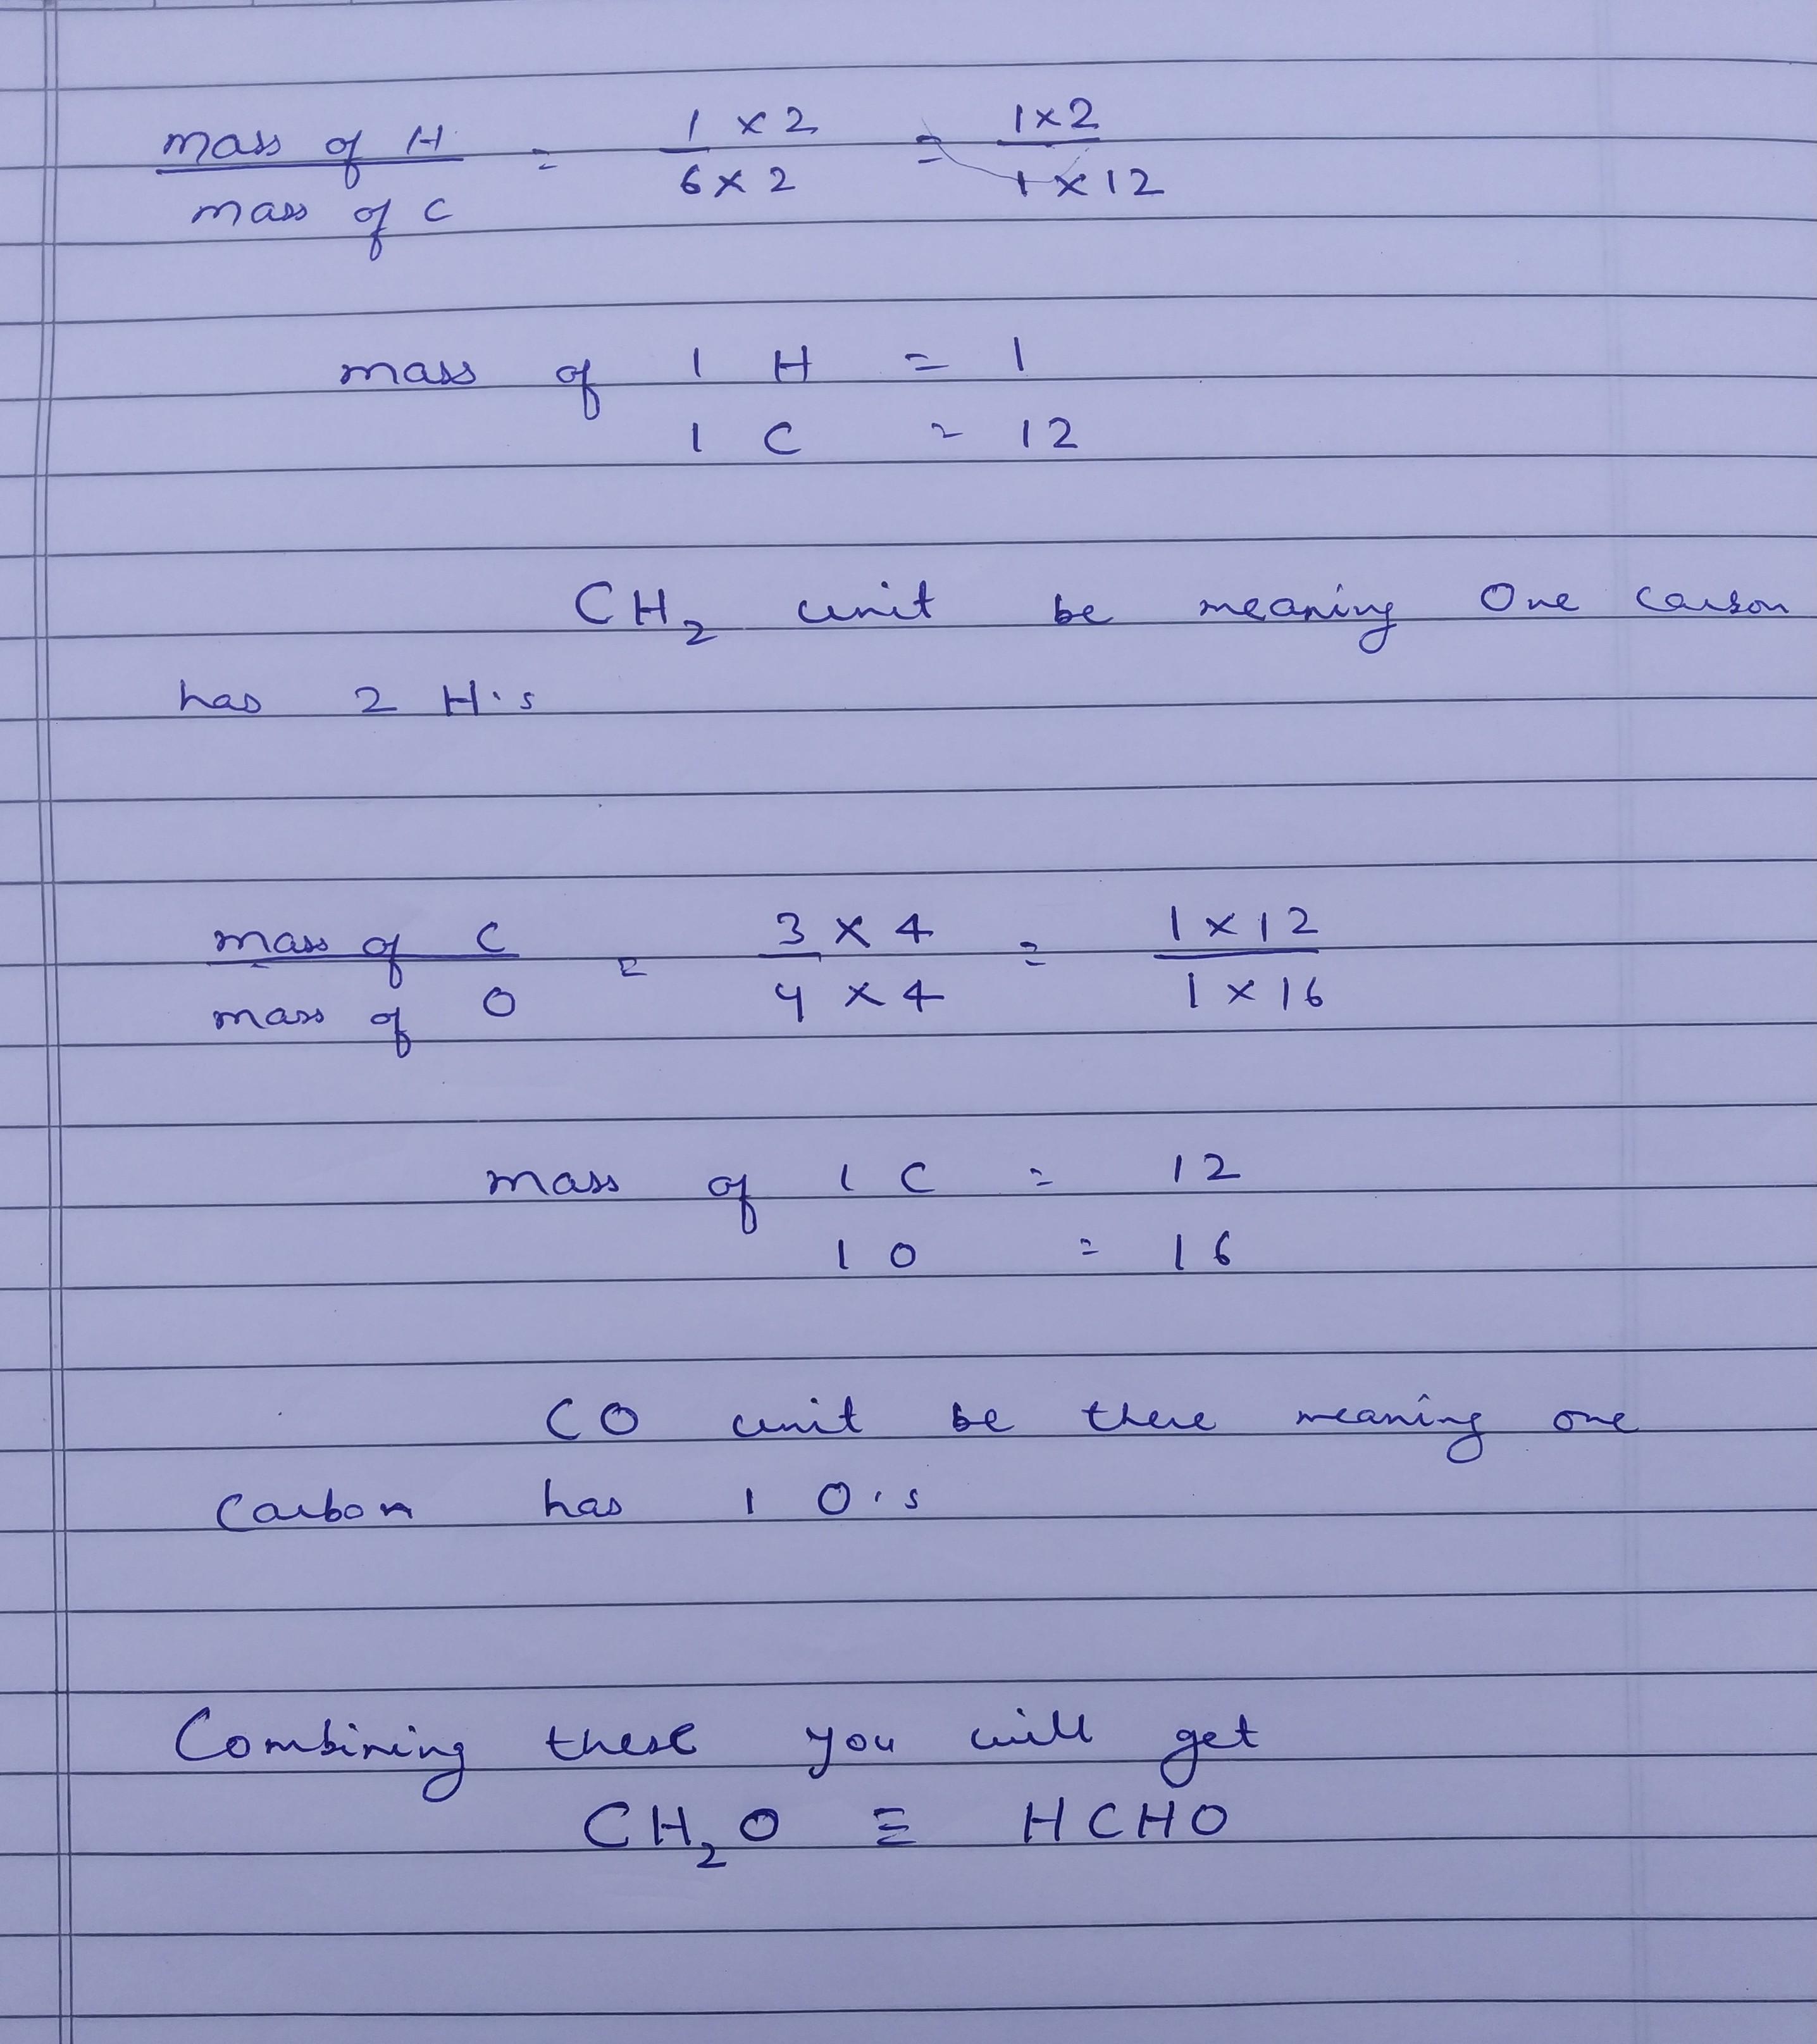 mass of H / mass of C = 1 x 2 / 6 x 2 = 1 x 2 / 1 x 12
mass of 1 H = 1
1 C = 12
CH₂ unit be meaning One carbon
has 2 H's
mass of C / mass of O = 3 x 4 / 4 x 4 = 1 x 12 / 1 x 16
mass of 1 C = 12
1 O = 16
CO unit be there meaning one
Carbon has 1 O's
Combining these you will get
CH₂O ≡ HCHO